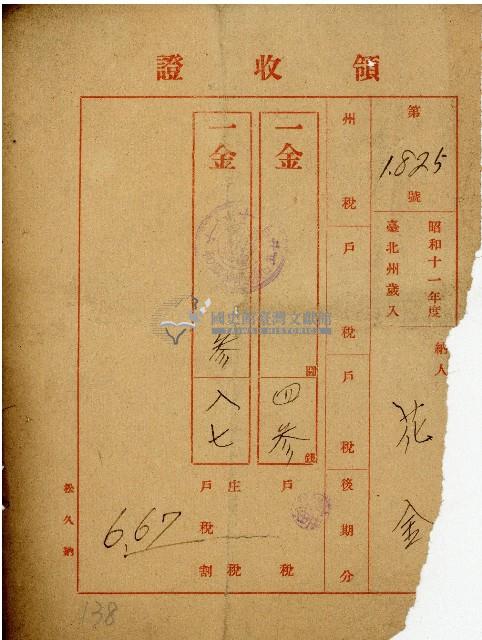 領收證
第1.825號
昭和十一年度
臺北州歲入
納人
花金
州稅戶稅戶稅後期分
一金
圓
四參
錢
戶稅
一金
參八七
庄稅
戶稅割
6.67
松久納
138
國史館臺灣文獻館
TAIWAN HISTORICA